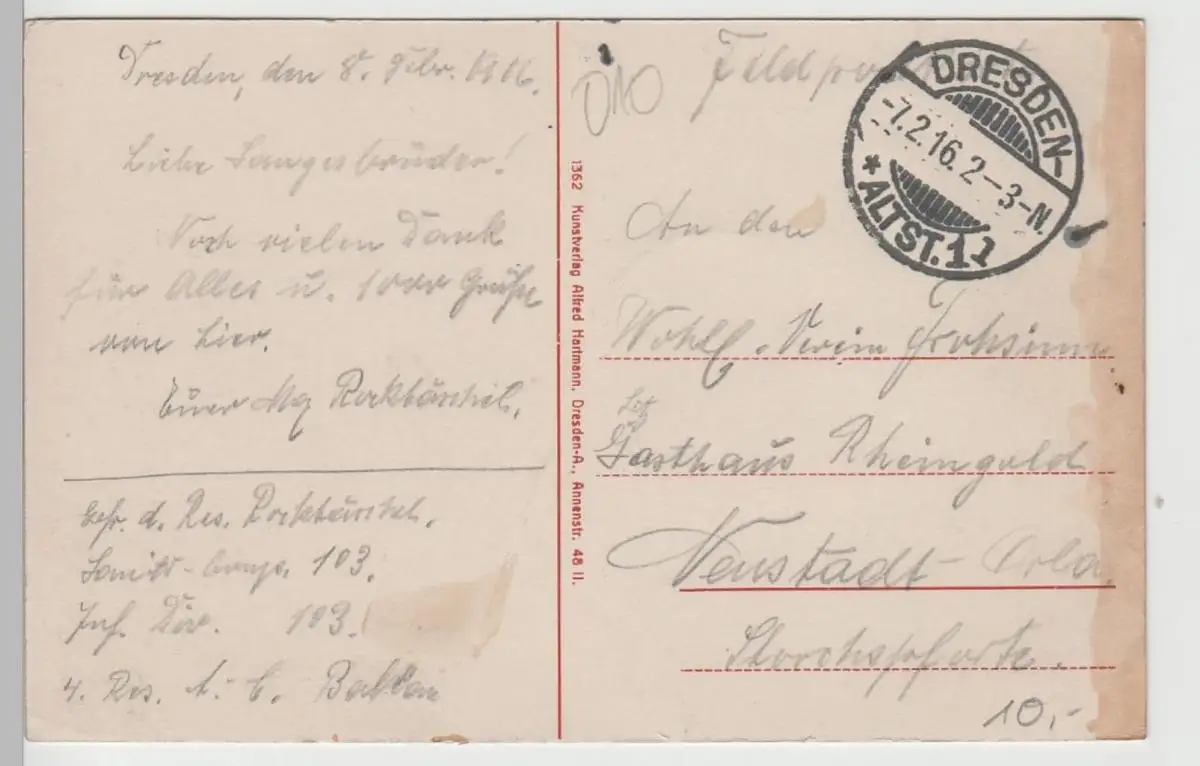 Dresden, den 8. Febr. 1916.
Liebe Sangesbrüder!
Noch vielen Dank
für Alles u. 1000 Grüße
von hier.
Euer
Gefr. d. Res.
Sanitts-Comp. 103.
Inf. Div. 103.
4. Res. A.-C. Balkan
1362 Kunstverlag Alfred Hartmann, Dresden-A., Annenstr. 48 II.
Feldpost
DRESDEN-
-7.2.16.2-3-N.
* ALTST. 1
An den
Verein Frohsinn
Gasthaus Rheingold
Neustadt-Orla
10,-